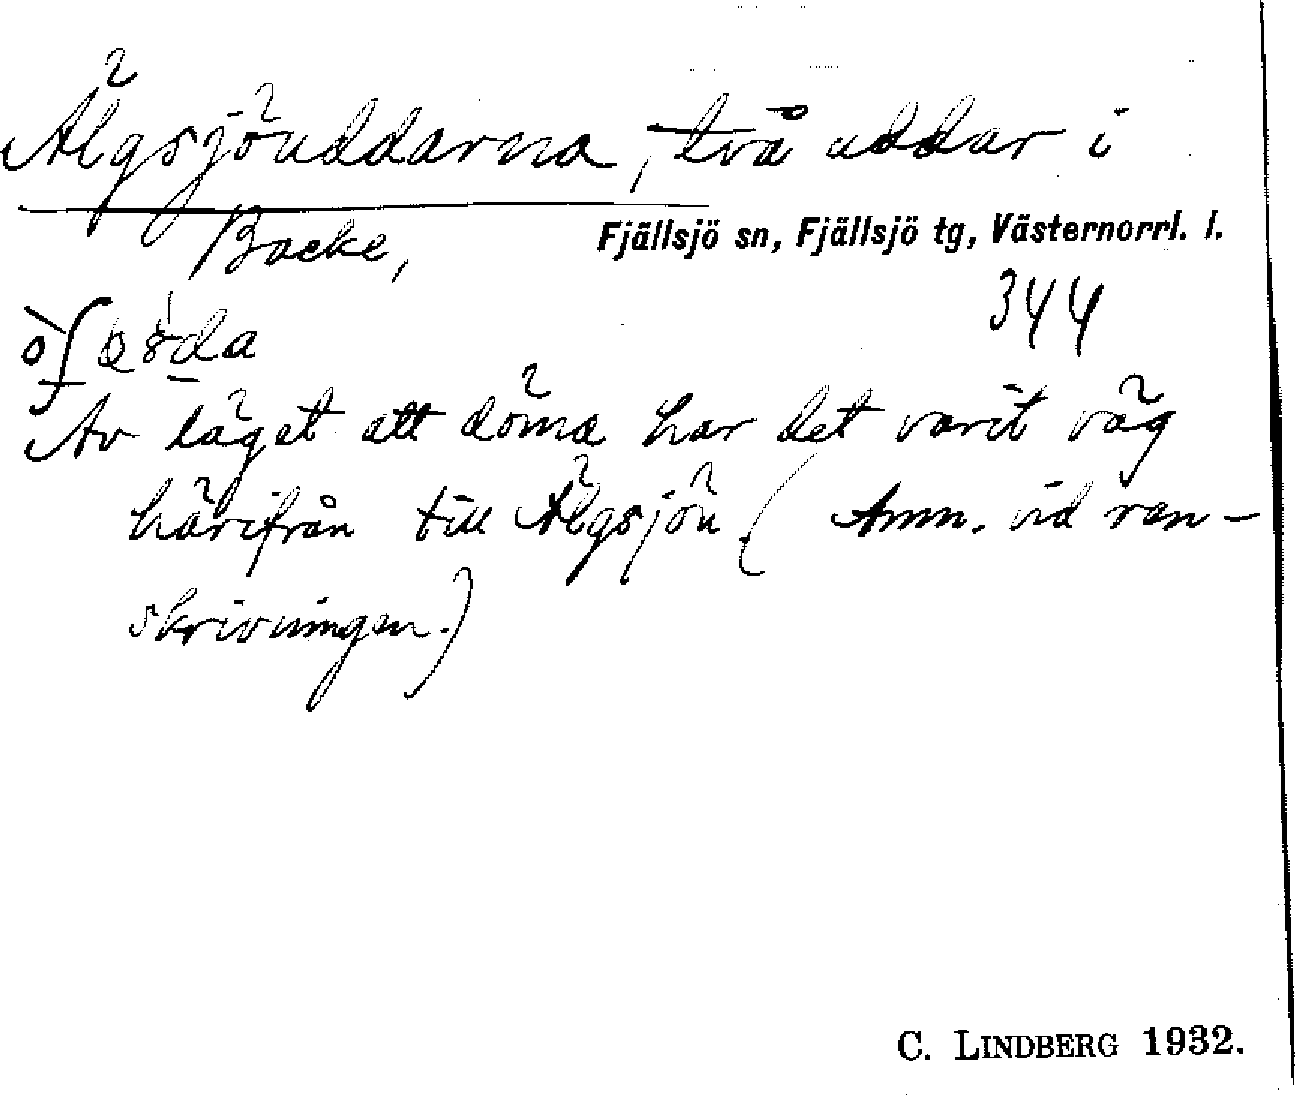 Älgsjöuddarna, två uddar i
Backe, Fjällsjö sn, Fjällsjö tg, Västernorrl. l.
344
Av läget att döma har det varit väg
härifrån till Älgsjön. (Anm. vid ren-
skrivningen.)
C. LINDBERG 1932.